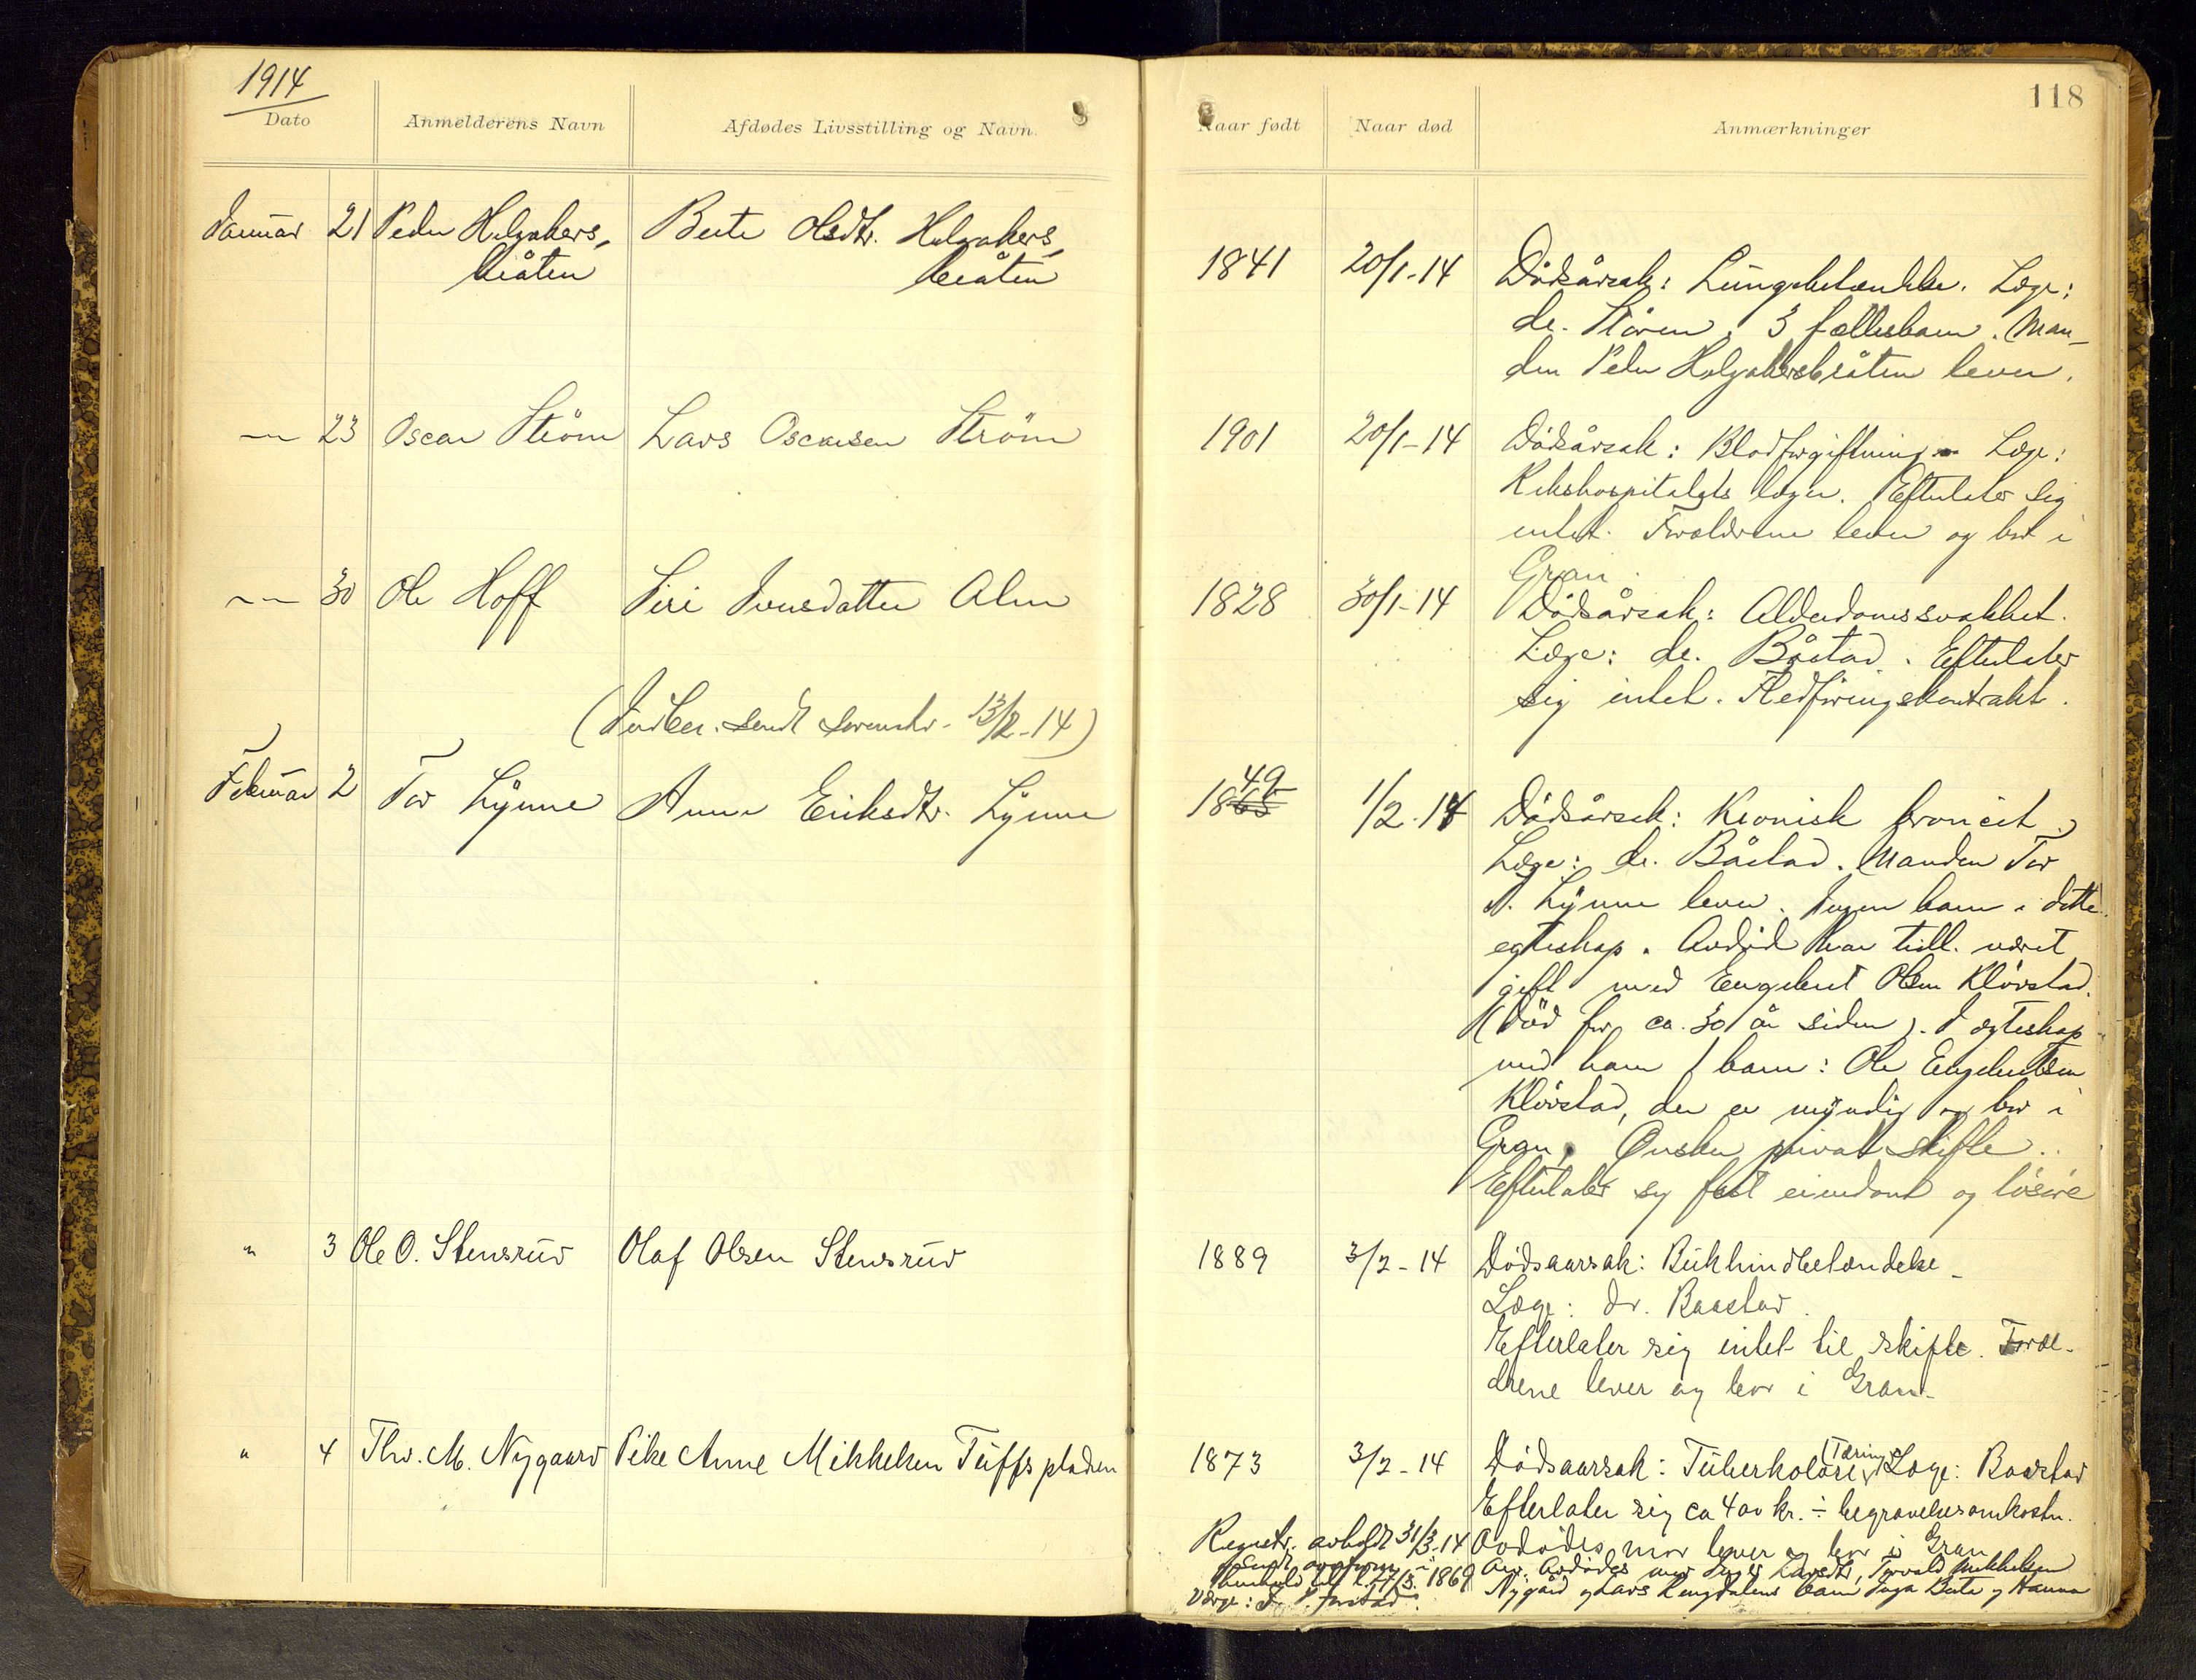 1914
118
Dato
Anmelderens Navn
Afdødes Livsstilling og Navn.
Naar født
Naar død
Anmærkninger
Januar 21 Peder Helgakers,
bråten
Berte Olsdtr. Helgakers,
bråten
1841
20/1-14
Dödsårsak: Lungebetændelse. Læge:
dr. Stören. 3 fællesbarn. Man-
den Peder Helgakersbråten lever.
— 23 Oscar Ström
Lars Oscarsen Ström
1901
20/1-14
Dödsårsak: Blodforgiftning. Læge:
Rikshospitalets læger. Efterlater sig
intet. Forældrene lever og bor i
Gran.
— 30 Ole Hoff
Siri Iversdatter Alm
1828
30/1-14
Dödsårsak: Alderdomssvakhet.
Læge: dr. Båstad. Efterlater
sig intet. Fledföringskontrakt.
(Indber. sendt sorenskr. 13/2-14)
Februar 2 Tor Lynne
Anne Eriksdtr. Lynne
49
1863
1/2.14
Dödsårsak: Kronisk broncit.
Læge: dr. Båstad. Manden Tor
Lynne lever. Ingen barn i dette
egteskap. Avdöd har tidl. været
gift med Engebret Olsen Klövstad.
(död for ca. 30 år siden). I egteskap
med ham 1 barn: Ole Engebretsen
Klövstad, der er myndig og bor i
Gran. Önsker privat skifte.
Efterlater sig fast eiendom og lösöre
" 3 Ole O. Stensrud
Olaf Olsen Stensrud
1889
3/2-14
Dödsaarsak: Bukhindbetændelse
Læge: dr. Baastad.
Efterlater sig intet til skifte. Foræl-
drene lever og bor i Gran.
" 4 Thv. M. Nygaard
Pike Anne Mikkelsen Tuffspladsen
1873
3/2-14
Dödsaarsak: Tuberkolose (Tæring) Læge: Baastad
Efterlater sig ca 400 kr. ÷ begravelsesomkostn.
Avdödes mor lever og bor i Gran
Registr. avholdt 31/3-14
1869
Arv. Avdödes mor Larsdtr, Torvald Mikkelsen
Nygård og Lars barn Inga Berte og Hanna
Værge: